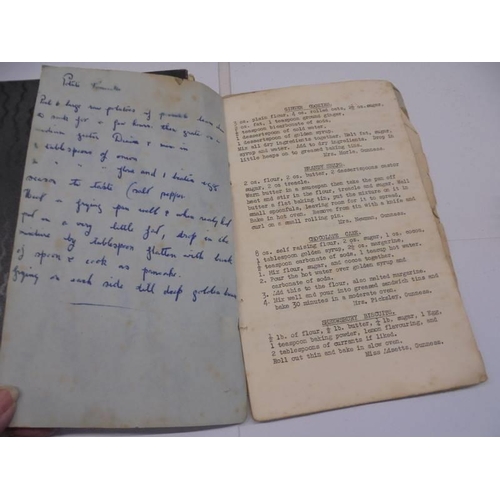 Put 2 large raw potatoes
to soak for 2 hours then grate on a
medium grater. Drain & mix in
2 tablespoons of
flour and 1 beaten egg
season to taste (salt pepper
Heat a frying pan well & when ready hot
put in a very little fat, drop in the
mixture by tablespoon flatten with back
of spoon & cook as pancake.
frying on each side till deep golden brown
GINGER COOKIES.
oz. plain flour, 4 oz. rolled oats, oz. sugar.
oz. fat, 1 teaspoon ground ginger.
teaspoon bicarbonate of soda.
1 dessertspoon of cold water.
1 dessertspoon of golden syrup.
Mix all dry ingredients together. Melt fat.
syrup and water. Add to dry ingredients. Drop in
little heaps on to greased baking tins.
Mrs. Orris, Dunasea.
BRANDY SNAPS.
2 oz. flour, 2 oz. butter, 2 dessertspoons castor
sugar, 2 oz treacle.
Warm butter in a saucepan then take the pan off
heat and stir in the flour, treacle and sugar. Well
butter a flat baking tin, put the mixture on it in
small spoonfuls, leaving room for it to spread.
Bake in hot oven. Remove from tin with a knife and
curl on a small rolling pin. Mrs. Dunasea.
CHOCOLATE CAKE.
8 oz. self raising flour, 2 oz. sugar, 1 oz. cocoa,
tablespoon golden syrup, 2½ oz. margarine.
teaspoon carbonate of soda. 1 teacup hot water.
1. Mix flour, sugar, and cocoa together.
2. Pour the hot water over golden syrup and
carbonate of soda.
3. Add this to the flour, also melted margarine.
4. Mix well and pour into greased sandwich tins and
bake 30 minutes in a moderate oven.
Mrs. Dunasea.
SHREWSBURY BISCUITS.
½ lb. of flour, ¼ lb. butter, ¼ lb. sugar, 1 Egg.
teaspoon baking powder, lemon flavouring, and
2 tablespoons of currants if liked.
Roll out thin and bake in slow oven.
Miss Dunasea.